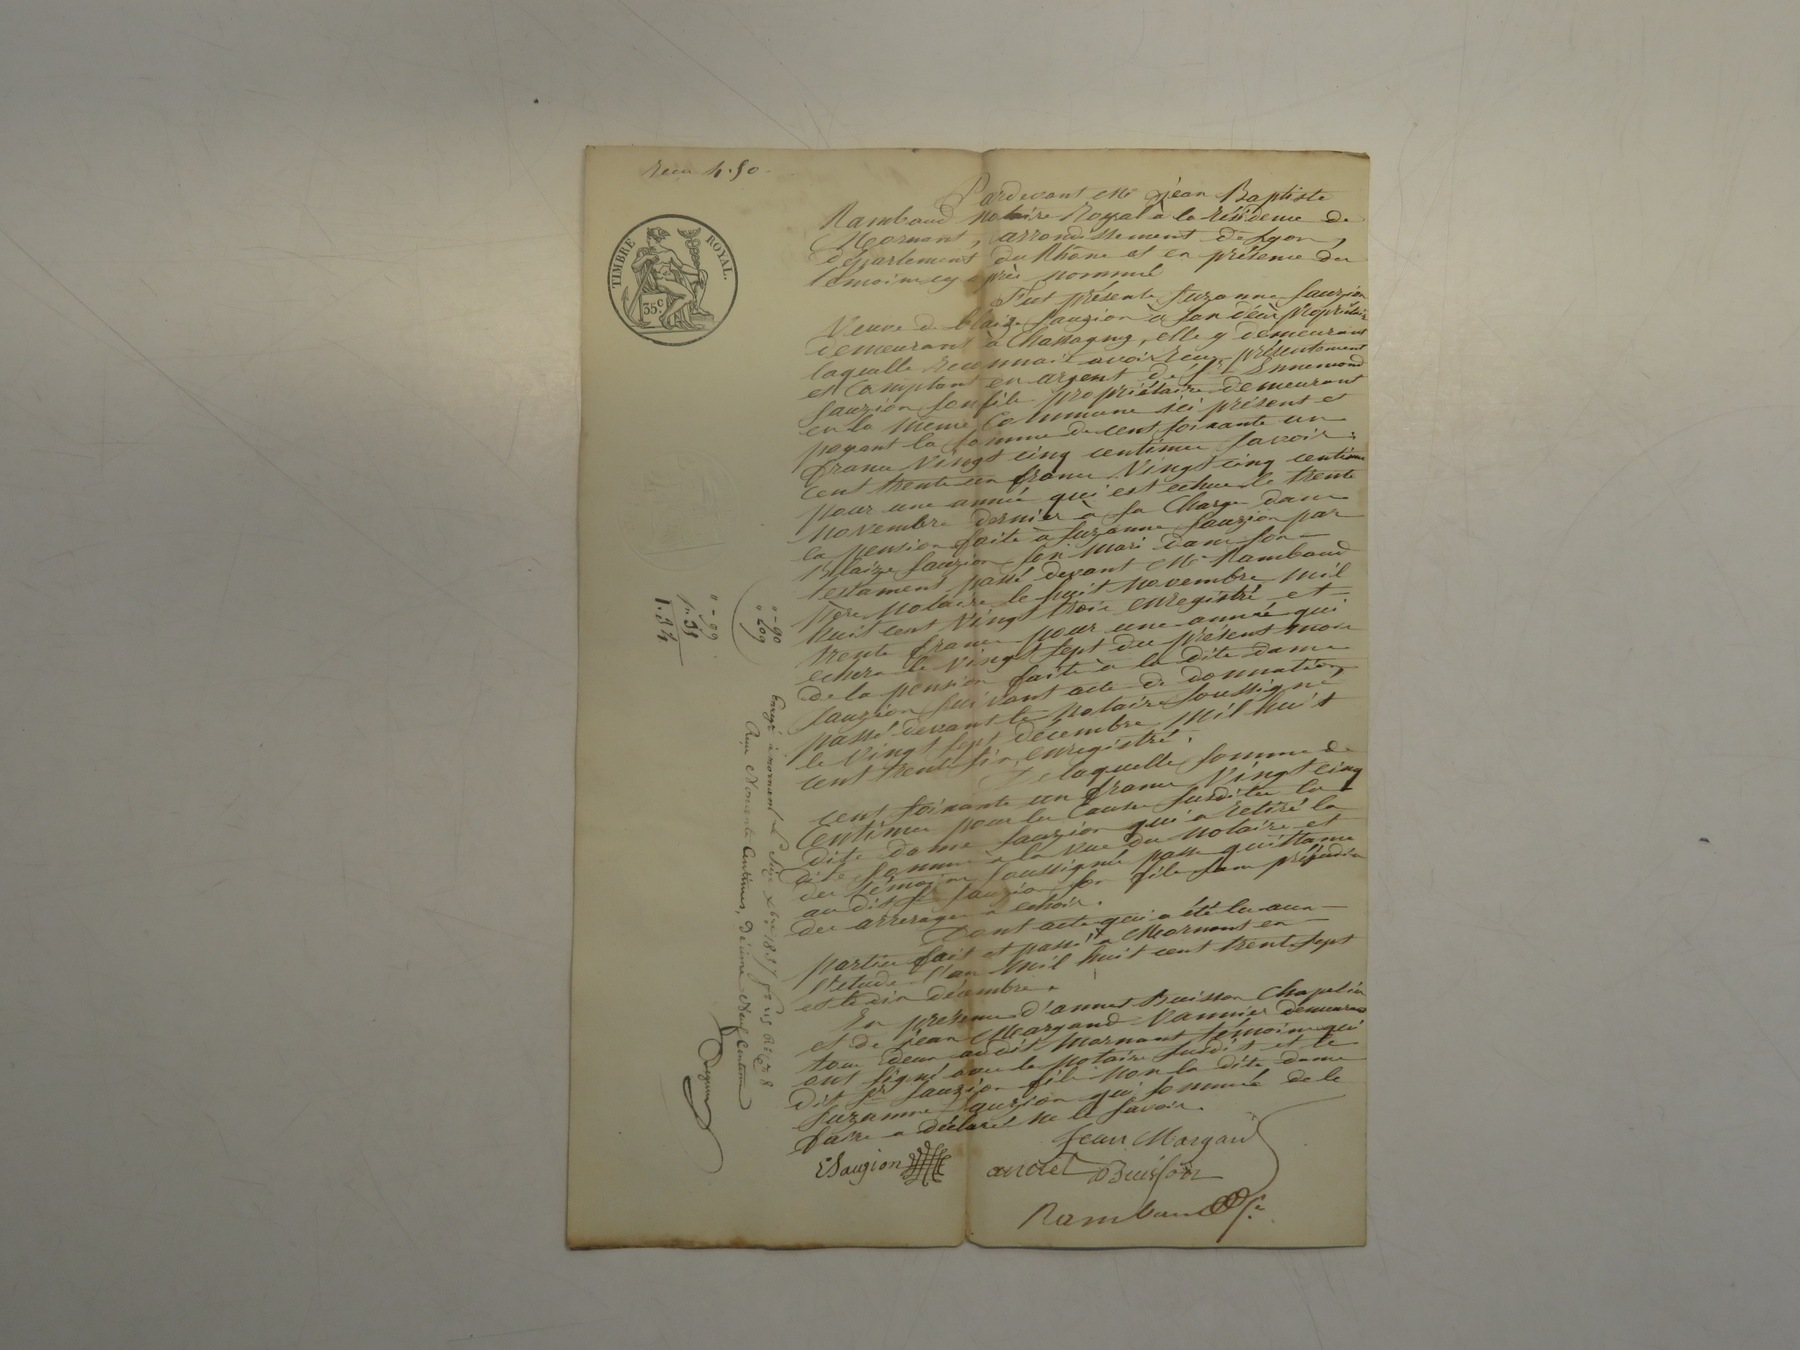 recu 4.50
TIMBRE ROYAL.
35 c.
Pardevant Me Jean Baptiste
Rambaud notaire Royal à la résidence de
Mornant, arrondissement de Lyon,
département du Rhône et en présence des
témoins cy après nommés
Fut présente Suzanne Sauzion
Veuve de Blaize Sauzion à son décès propriétaire
demeurant à Chassagny, elle y demeurant
laquelle reconnait avoir recu présentement
et Comptant en argent de Sr Ennemond
Sauzion son fils propriétaire demeurant
en la meme Commune ici présent et
payant la somme de cent soixante un
francs vingt cinq centimes savoir :
cent trente un francs vingt cinq centimes
pour une année qui est echue le trente
novembre dernier à sa Charge dans
la pension faite à Suzanne Sauzion par
Blaize Sauzion son mari dans son
testament passé devant Me Rambaud
Père notaire le huit novembre mil
huit cent vingt trois enregistré et
trente francs pour une année qui
echera le vingt sept du présent mois
de la pension faite à la dite dame
Sauzion suivant acte de donnation
passé devant le notaire soussigné
le vingt sept décembre mil huit
cent trente six, enregistré.
De laquelle somme de
cent soixante un francs vingt cinq
Centimes pour les Causes susdites la
dite dame Sauzion qui a retiré la
dite somme à la vue du notaire et
des témoins soussignés passe quittance
au dit Sr Sauzion son fils sans préjudice
des arrerages a echoir.
Dont acte qui a été lu aux
parties fait et passé à Mornant en
l'etude l'an mil huit cent trente sept
et le dix décembre.
En présence d'annet Buisson Chapelier
et de Jean Margand Vannier demeurant
tous deux au dit Mornant témoins qui
ont signé avec le notaire susdit et le
dit Sr Sauzion fils non la dite dame
Suzanne Sauzion qui sommée de le
faire a déclaré ne le savoir.
Jean Margand
ESauzion
annet Buisson
Rambaud
0-90
0-09
0-99
1.34
Enregé à mornant le xbre 1837 fo 115 Ro Ce 8
Recu Nonante Centimes, Décime Neuf Centimes